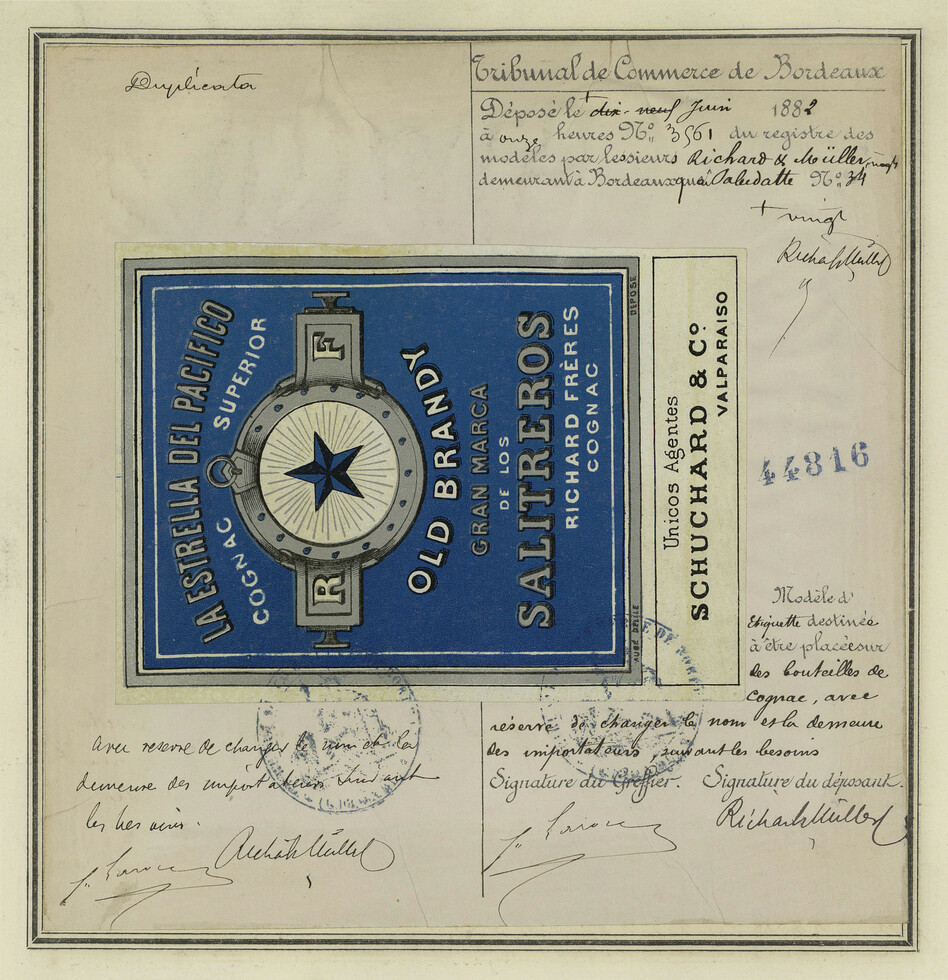 Duplicata
Tribunal de Commerce de Bordeaux
Déposé le + dix-neuf Juin 1882
à onze heures Nº 3561 du registre des
modèles par les sieurs Richard & Müller, négts
demeurant à Bordeaux quai Paludatte Nº 34
+ vingt
Richard & Müller
LA ESTRELLA DEL PACIFICO
COGNAC SUPERIOR
R F
OLD BRANDY
GRAN MARCA
DE LOS
SALITREROS
RICHARD FRÈRES
COGNAC
DEPOSÉ
Unicos Agentes
SCHUCHARD & Cº
VALPARAISO
44816
Modèle d'
Etiquette destinée
à être placée sur
des bouteilles de
Cognac, avec
réserve de changer le nom et la demeure
des importateurs, suivant les besoins
Signature du Greffier. Signature du déposant.
Richard & Müller
Avec reserve de changer le nom et la
demeure des importateurs suivant
les besoins.
Richard & Müller